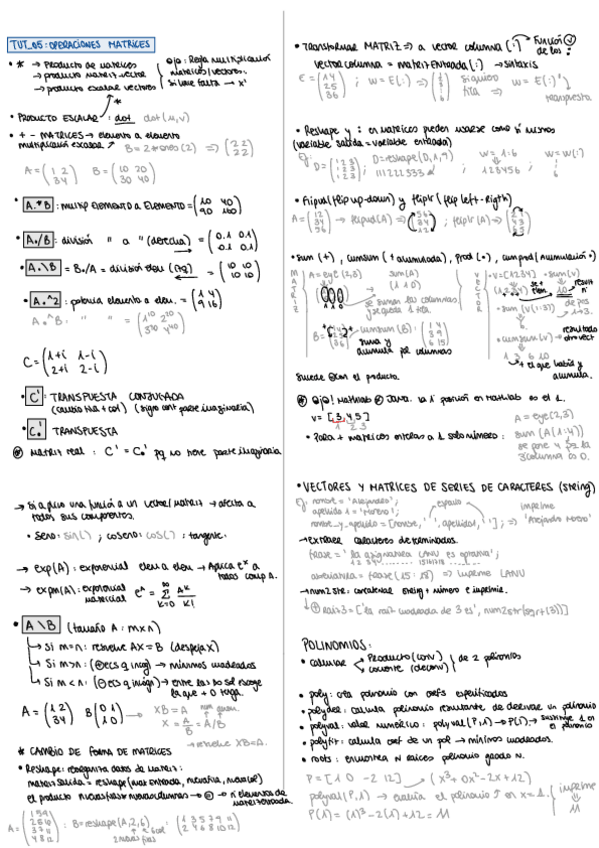 TUT_05: OPERACIONES MATRICES
• * → Producto de matrices
→ producto matriz·vector
→ producto escalar vectores
ojo: Regla multiplicación
matrices/vectores.
si uve falta → x'
• PRODUCTO ESCALAR: dot dot(u,v)
• + - MATRICES → elemento a elemento
multiplicación escalar ↗ B = 2*ones(2) ⇒ (2 2
2 2)
A = (1 2
3 4) B = (10 20
30 40)
• A.*B : multip elemento a elemento = (10 40
90 160)
• A./B : división " a " (derecha) = (0.1 0.1
0.1 0.1)
• A.\B = B./A = división elem (izq) = (10 10
10 10)
• A.^2 : potencia elemento a elem. = (1 4
9 16)
A.^B. " "
C = (1+i 1-i
2+i 2-i)
• C' : TRANSPUESTA CONJUGADA
(cambio fila + col) (signo cont parte imaginaria)
• C.' TRANSPUESTA
matriz real : C' = C.' pq no tiene parte imaginaria
→ Si aplico una función a un vector/matriz → afecta a
todos sus componentes.
• Seno: sin( ) ; coseno: cos( ) : tangente.
→ exp(A) : exponencial elem a elem → Aplica e^x a
todos comp A.
→ expm(A) : exponencial
matricial e^A = ∞ Σ k=0 A^k / k!
• A\B (tamaño A : m x n)
→ Si m = n : resuelve AX = B (despeja X)
→ Si m > n : (⊕ ecs q incog) → mínimos cuadrados
→ Si m < n : (⊖ ecs q incógn) → entre las ∞ sol escoge
la que + 0 tenga.
A = (1 2
3 4) B (0 1
1 0) → XB = A
X = A/B = A/B
→ resuelve XB = A.
* CAMBIO DE FORMA DE MATRICES
• Reshape: reorganiza datos de matriz:
matriz salida = reshape(
A = (1 5 9
2 6 10
3 7 11
4 8 12) : B = reshape(A,2,6) (1 3 5 7 9 11
2 4 6 8 10 12)
2 nuevas filas
• TRANSFORMAR MATRIZ ⇒ a vector columna (:) → Función
de los :
vector columna = matriz entrada (:) → sintaxis
w = E(:) ⇒ si quiero
fila ⇒ w = E(:)'
transpuesta
• Reshape y : en matrices pueden usarse como si mismos
(variable salida = variable entrada)
Ej: D = (1 2 3
1 2 3
1 2 3) D = reshape(D,1,9)
111222333
w = 1:6
123456
w = w(:)
• flipud (flip up-down) y fliplr (flip left-right)
A = (1 2
3 4) → flipud(A) ⇒ ; fliplr(A) ⇒
• sum (+), cumsum (+ acumulada), prod (•), cumprod (acumulación •)
MATRIZ
A = eye(2,3) sum(A)
(1 1 0)
se suman las columnas
cumsum(B) :
suma y
acumula por columnas
VECTOR
v = (1 2 3 4) → sum(v)
sum(v(1:3))
cumsum(v) →
1 3 6 10
+ el que había y
acumula.
Sucede con el producto.
ojo! Matlab Java. La 1ª posición en matlab es el 1.
v = [ 3, 4, 5 ]
1 2 3
A = eye(2,3)
• Para + matrices enteras a 1 solo número : sum (A(1:4))
• VECTORES Y MATRICES DE SERIES DE CARACTERES (string)
Ej: nombre = 'Alejandro';
apellido1 = 'Moreno';
espacio
imprime
nombre_y_apellido = [nombre, ' ', apellido1, '.']; ⇒ 'Alejandro Moreno'
→ Extraer caracteres determinados.
frase = 'la asignatura CANU es optativa';
= frase(15:18) ⇒ imprime CANU
→ num2str: concatenar string + número e imprime.
raiz3 = ['la raiz cuadrada de 3 es', num2str(sqrt(3))]
POLINOMIOS:
• calcular Producto (conv)
cociente (deconv) de 2 polinomios
• poly: crea polinomio con coefs especificados
• polyder: calcula polinomio resultante de derivar un polinomio
• polyval: valor numérico : polyval(P,1) → P(1) → sustituye 1 en
el polinomio
• polyfit: calcula coef de un pol → mínimos cuadrados.
• roots: encuentra N raíces polinomio grado N.
P = [1 0 -2 12] → (x³ + 0x² - 2x + 12)
polyval(P,1) → evalúa el polinomio ↑ en x = 1. imprime
P(1) = (1)³ - 2(1) + 12 = 11
11